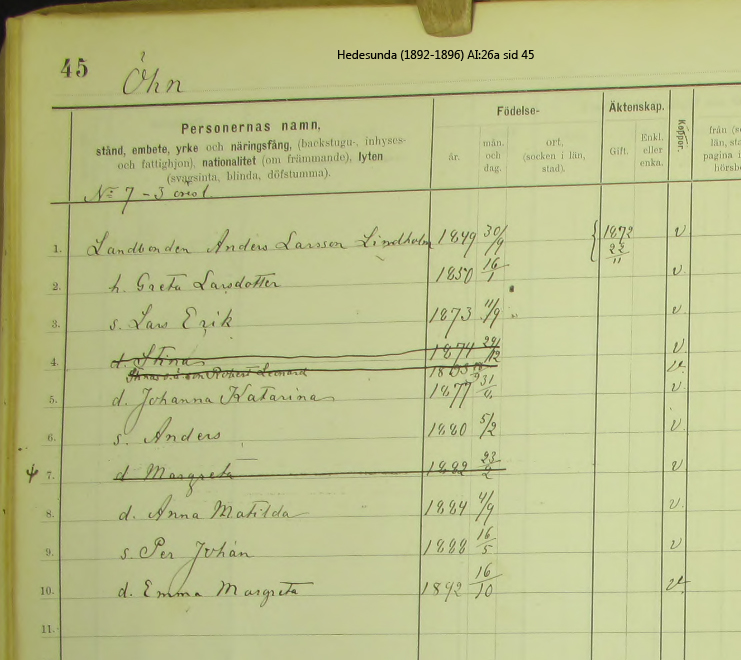 Hedesunda (1892-1896) AI:26a sid 45
45 Öhn
Personernas namn,
stånd, embete, yrke och näringsfång, (backstugu-, inhyses-
och fattighjon), nationalitet (om främmande), lyten
(svagsinta, blinda, döfstumma).
Födelse-
år.
mån. och dag.
ort, (socken i län, stad).
Äktenskap.
Gift.
Enkl. eller enka.
Koppor.
från (so
län, sta
pagina i
hörsbo
No 7 - 3
1. Landbonden Anders Larsson Lindholm 1849 30/9 { 1872 22/11 v
2. h. Greta Larsdotter 1850 16/1 v
3. s. Lars Erik 1873 11/9 v
4. d. Stina 1874 v
Stinas o.ä. son Robert Leonard v
5. d. Johanna Katarina 1877 v
6. s. Anders 1880 5/2 v
7. d Margreta 1882 23/2 v
8. d. Anna Matilda 1884 4/9 v
9. s. Per Johan 1888 16/5 v
10. d. Emma Margreta 1892 16/10 v
11.